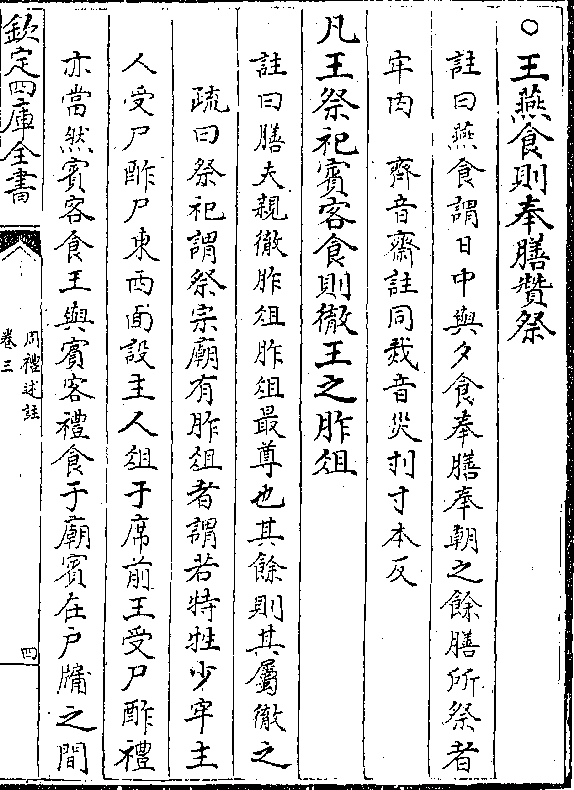 ○王燕食則奉膳贊祭
註曰燕食謂日中與夕食奉膳奉朝之餘膳所祭者
牢肉　齊音齋註同烖音災刌寸本反
凡王祭祀賓客食則徹王之胙俎
註曰膳夫親徹胙俎胙俎最尊也其餘則其屬徹之
疏曰祭祀謂祭宗廟有胙俎者謂若特牲少牢主
人受尸酢尸東西面設主人俎于席前王受尸酢禮
亦當然賓客食王與賓客禮食于廟賓在戶牖之間
欽定四庫全書
周禮述註
卷三
四